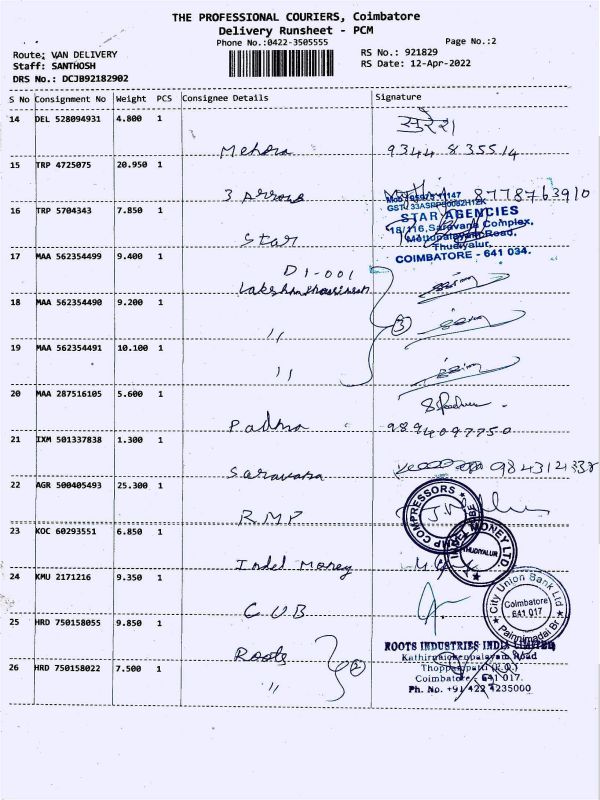 THE PROFESSIONAL COURIERS, Coimbatore
Delivery Runsheet - PCM
Phone No.:0422-3505555
Page No.:2
Route: VAN DELIVERY
RS No.: 921829
Staff: SANTHOSH
RS Date: 12-Apr-2022
DRS No.: DCJB92182902
S No Consignment No Weight PCS Consignee Details Signature
14 DEL 528094931 4.800 1
सुरेश
Mehara 9344 835514
15 TRP 4725075 20.950 1
3 Arrows 8778763910
16 TRP 5704343 7.850 1
STAR AGENCIES
18/116, Saravana Complex,
Mettupalayam Road,
Thudiyalur,
COIMBATORE - 641 034.
Star
17 MAA 562354499 9.400 1
D1-001
18 MAA 562354490 9.200 1
〃 3
19 MAA 562354491 10.100 1
〃
20 MAA 287516105 5.600 1
Padma 9894097750
21 IXM 501337838 1.300 1
Saravana
22 AGR 500405493 25.300 1
RMP COMPRESSORS
R.M.P
23 KOC 60293551 6.850 1
MONEY LTD
THUDIYALUR
Indel Money
24 KMU 2171216 9.350 1
City Union Bank Ltd
Coimbatore
641 017
C.U.B
25 HRD 750158055 9.850 1
ROOTS INDUSTRIES INDIA LIMITED
Roots
26 HRD 750158022 7.500 1
〃 2
Coimbatore - 641 017.
Ph. No. +91 422 4235000